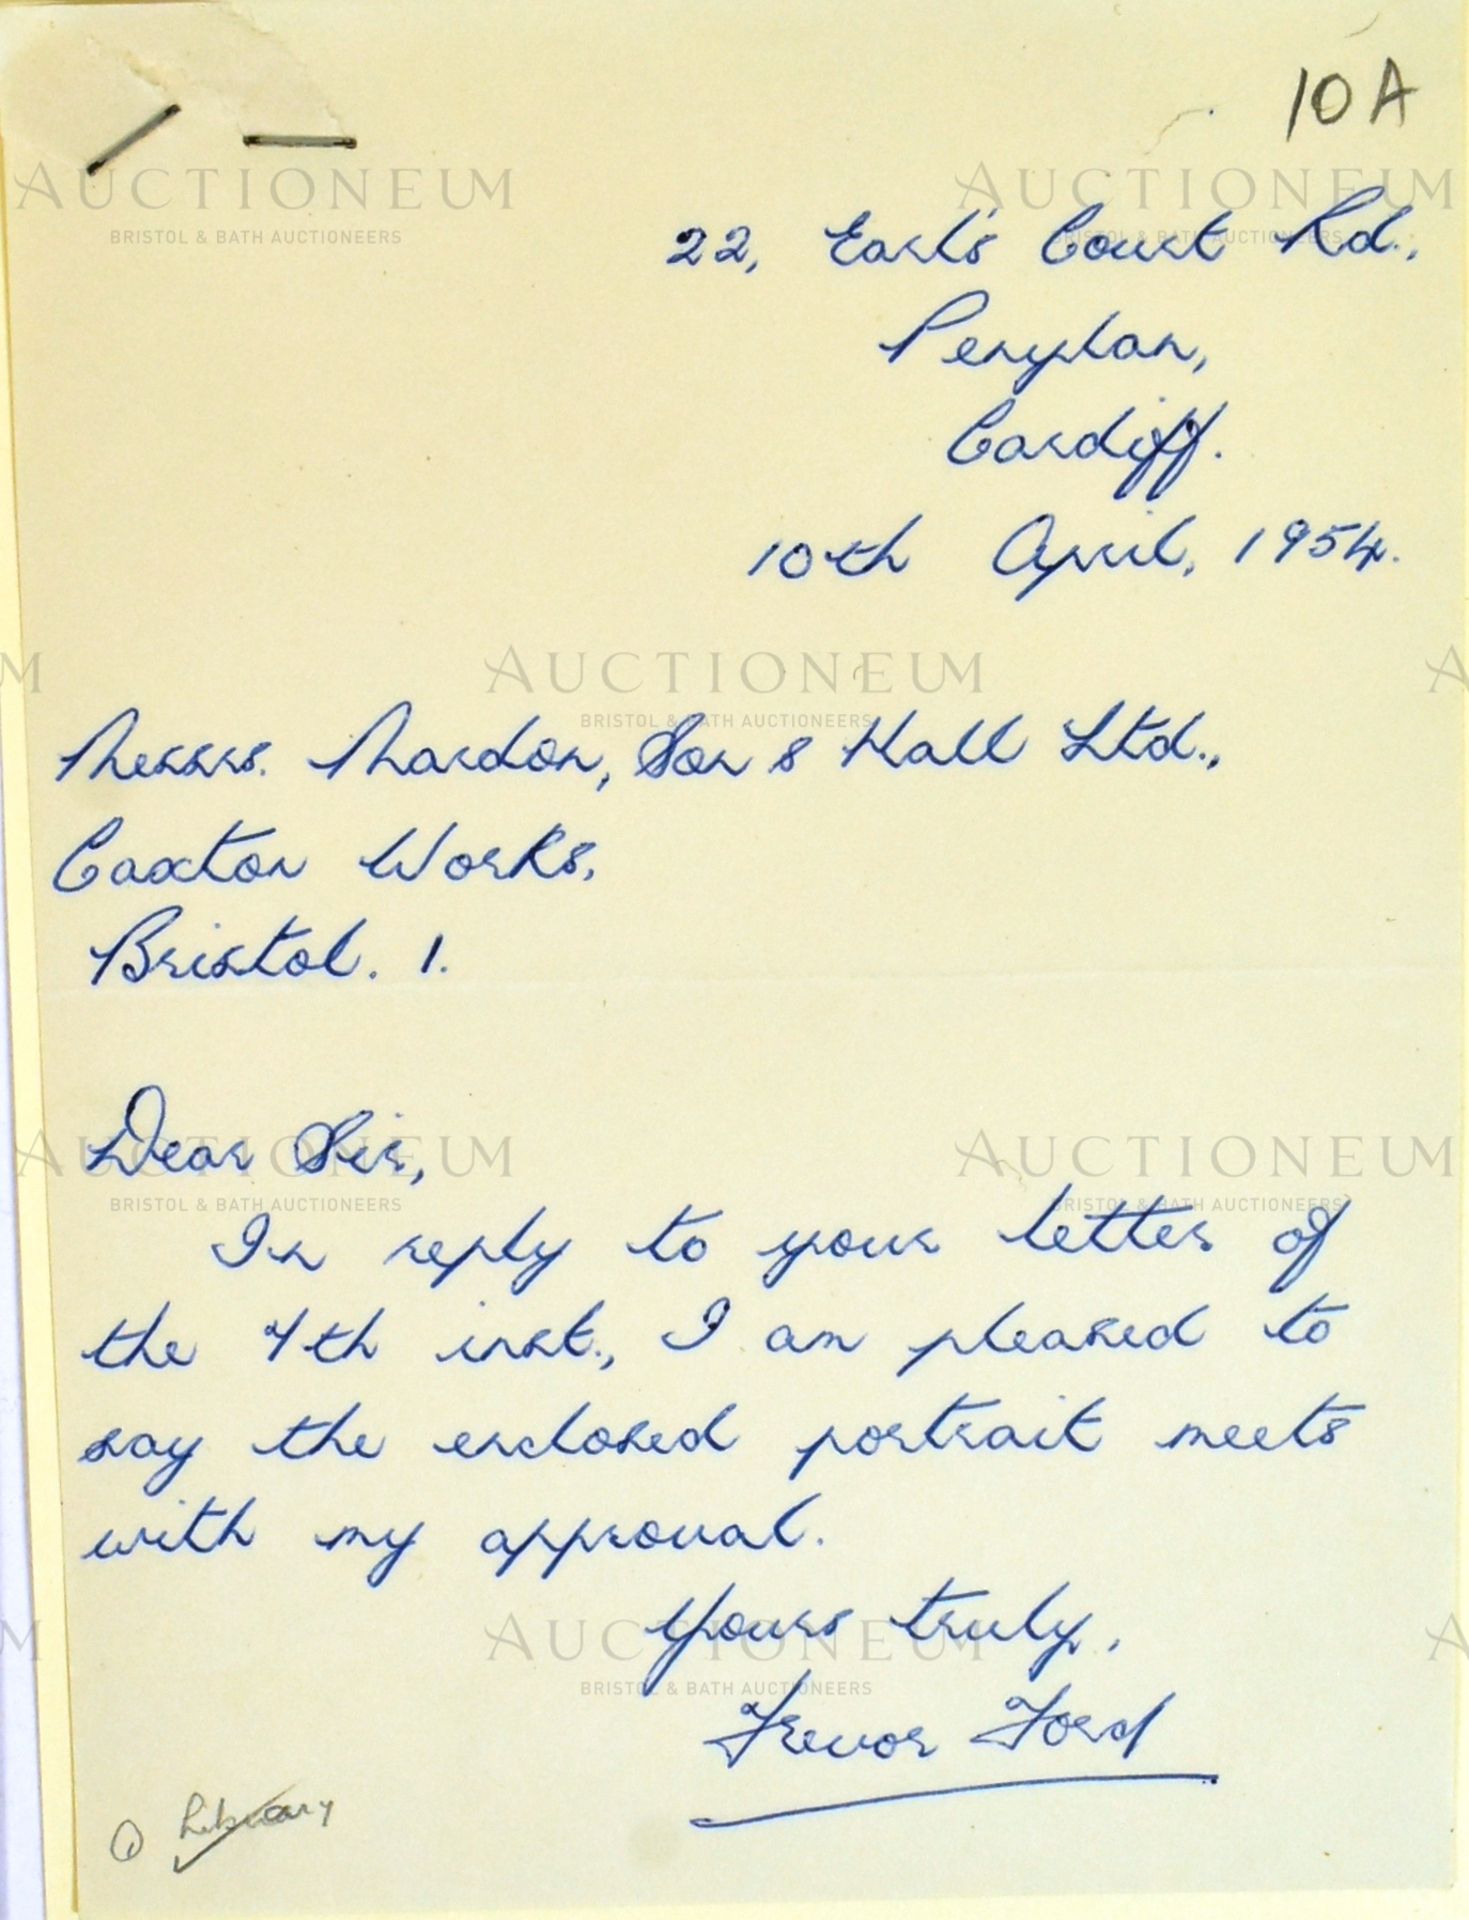 10A
22, Earl's Court Rd.,
Penylan,
Cardiff.
10th April, 1954.
Messrs. Mardon, Son & Hall Ltd.,
Caxton Works,
Bristol. 1.
Dear Sir,
In reply to your letter of
the 7th inst., I am pleased to
say the enclosed portrait meets
with my approval.
Yours truly,
Trevor Ford
① Library
AUCTIONEUM
BRISTOL & BATH AUCTIONEERS